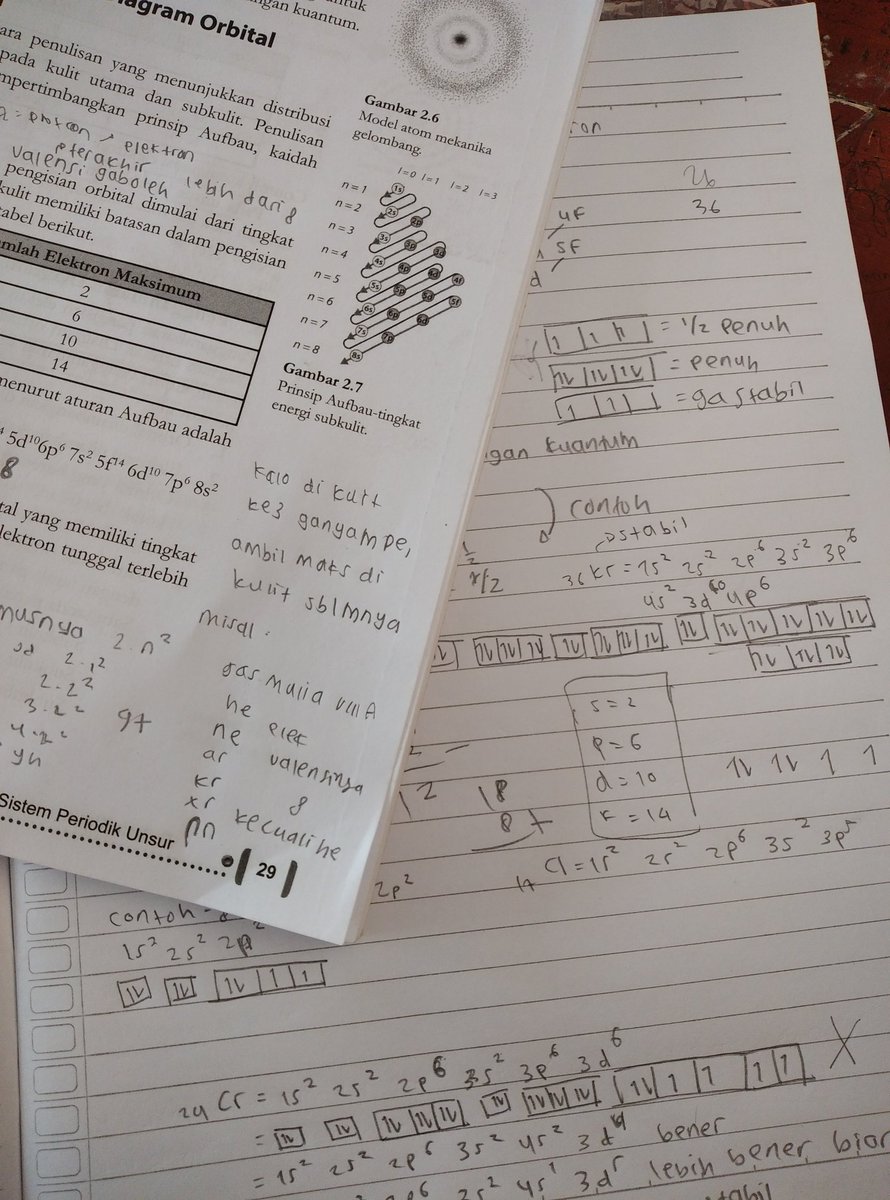 ngan kuantum.
agram Orbital
ara penulisan yang menunjukkan distribusi
pada kulit utama dan subkulit. Penulisan
mpertimbangkan prinsip Aufbau, kaidah
elektron
terakhir
valensi gaboleh lebih dari 8
pengisian orbital dimulai dari tingkat
kulit memiliki batasan dalam pengisian
tabel berikut.
mlah Elektron Maksimum
2
6
10
14
menurut aturan Aufbau adalah
5d¹⁰6p⁶ 7s² 5f¹⁴ 6d¹⁰ 7p⁶ 8s²
8
tal yang memiliki tingkat
lektron tunggal terlebih
musnya 2.n²
2.1²
2.2²
Gambar 2.6
Model atom mekanika
gelombang.
l=0 l=1 l=2 l=3
n=1 1s
n=2 2s 2p
n=3 3s 3p 3d
n=4 4s 4p 4d 4f
n=5 5s 5p 5d 5f
n=6 6s 6p 6d
n=7 7s 7p
n=8 8s
Gambar 2.7
Prinsip Aufbau-tingkat
energi subkulit.
kalo di kulit
ke3 ganyampe,
ambil maks di
kulit sblmnya
misal.
gas mulia VIIIA
he elek
ne valensinya
ar 8
kr kecuali he
xr
rn
Sistem Periodik Unsur
29
36
4f
5f
d
= 1/2 penuh
= penuh
= ga stabil
gan kuantum
contoh
stabil
36 Kr = 1s² 2s² 2p⁶ 3s² 3p⁶
4s² 3d¹⁰ 4p⁶
s = 2
p = 6
d = 10
f = 14
18
8 +
17 Cl = 1s² 2s² 2p⁶ 3s² 3p⁵
2p²
contoh
1s² 2s² 2p
24 Cr = 1s² 2s² 2p⁶ 3s² 3p⁶ 3d⁶ X
= 1s² 2s² 2p⁶ 3s² 4s² 3d⁴ bener
2s² 4s¹ 3d⁵ lebih bener, biar